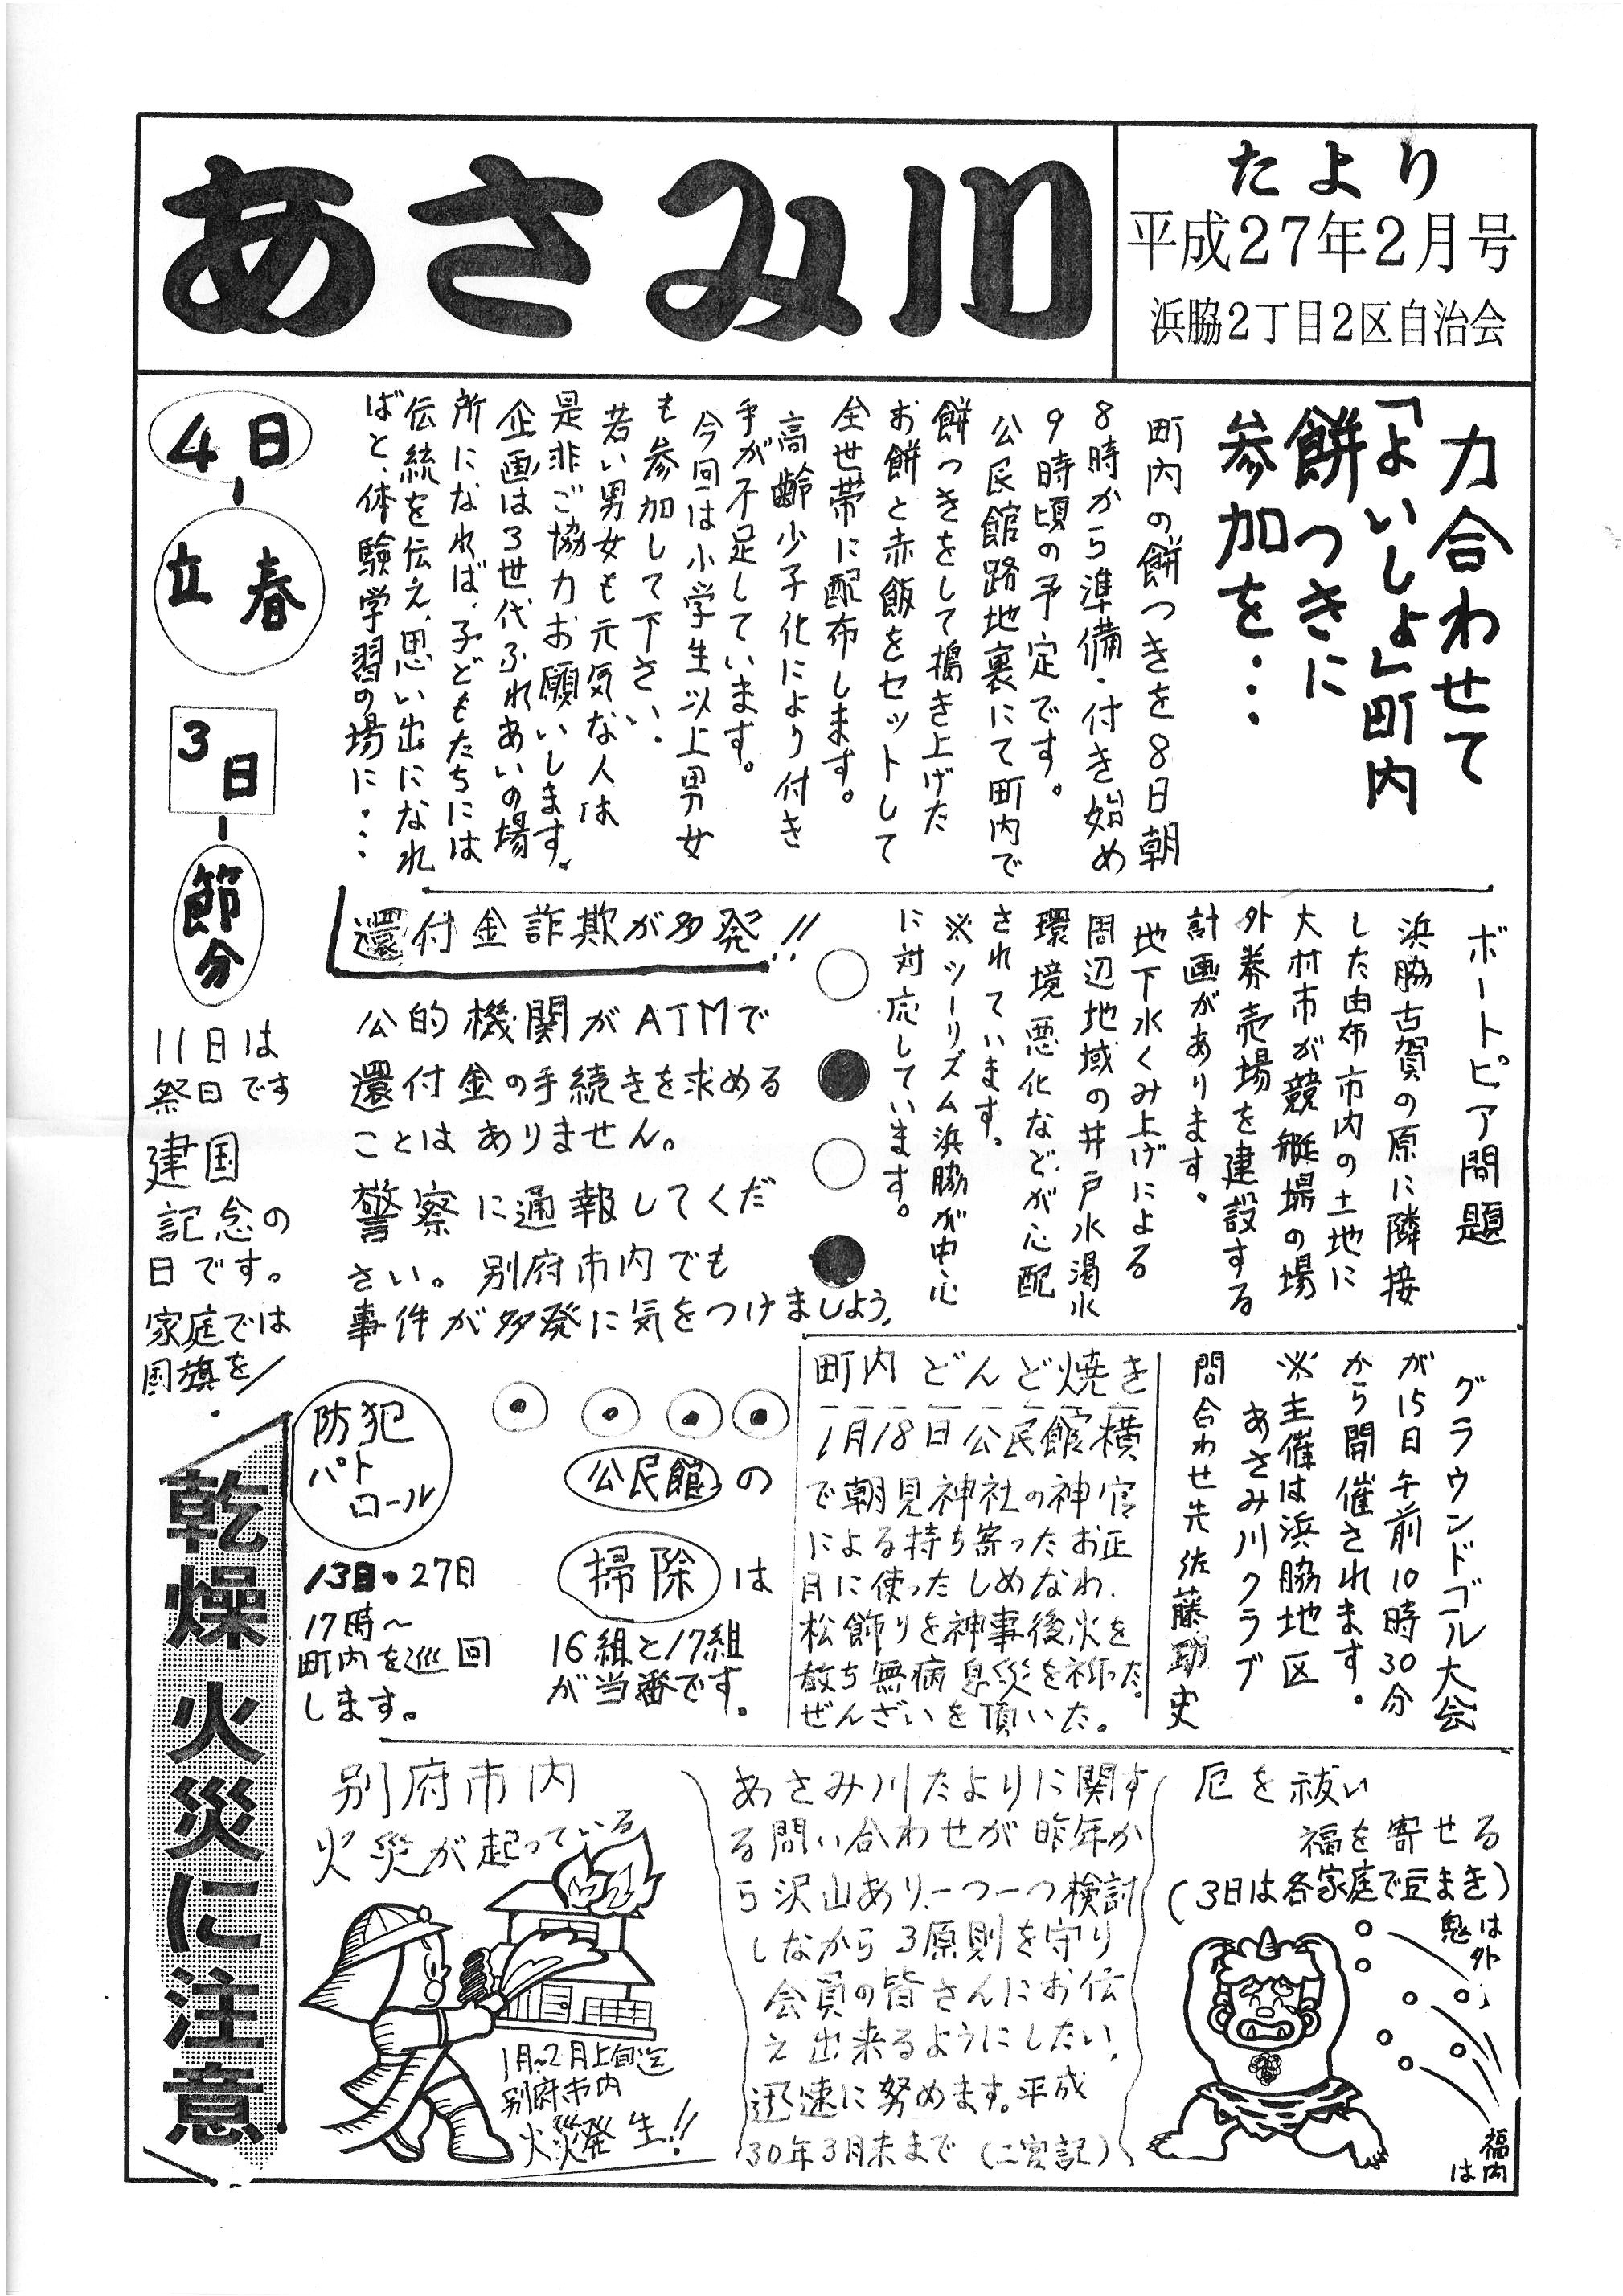 あさみ川
たより
平成27年2月号
浜脇2丁目2区自治会
力合わせて
「よいしょ」町内
餅つきに
参加を・・・
町内の餅つきを8日朝
8時から準備・付き始め
9時頃の予定です。
公民館路地裏にて町内で
餅つきをして搗き上げた
お餅と赤飯をセットして
全世帯に配布します。
高齢少子化により付き
手が不足しています。
今回は小学生以上男女
も参加して下さい。
若い男女も元気な人は
是非ご協力お願いします。
企画は3世代ふれあいの場
所になれば、子どもたちには
伝統を伝え、思い出になれ
ばと、体験学習の場に・・・
4日
立春
3日
節分
11日は
祭日です
建国
記念の
日です。
家庭では
国旗を
ボートピア問題
浜脇古賀の原に隣接
した由布市内の土地に
大村市が競艇場の場
外券売場を建設する
計画があります。
地下水くみ上げによる
周辺地域の井戸水渇水
環境悪化などが心配
されています。
※ツーリズム浜脇が中心
に対応しています。
還付金詐欺が多発!!
公的機関がATMで
還付金の手続きを求める
ことはありません。
警察に通報してくだ
さい。別府市内でも
事件が多発に気をつけましょう。
グラウンドゴルフ大会
が15日午前10時30分
から開催されます。
※主催は浜脇地区
あさみ川クラブ
問合わせ先 佐藤助史
町内どんど焼き
1月18日公民館横
で朝見神社の神官
による持ち寄ったお正
月に使ったしめなわ、
松飾りを神事後火を
放ち無病息災を祈った。
ぜんざいを頂いた。
公民館の
掃除は
16組と17組
が当番です。
防犯
パト
ロール
13日・27日
17時~
町内を巡回
します。
乾燥 火災に注意
厄を祓い
福を寄せる
(3日は各家庭で豆まき)
鬼は
外
福は
内
あさみ川たよりに関す
る問い合わせが昨年か
ら沢山あり、一つ一つ検討
しながら3原則を守り
会員の皆さんにお伝
え出来るようにしたい。
迅速に努めます。平成
30年3月末まで (二宮記)
別府市内
火災が起っている
1月~2月上旬迄
別府市内
火災発生!!